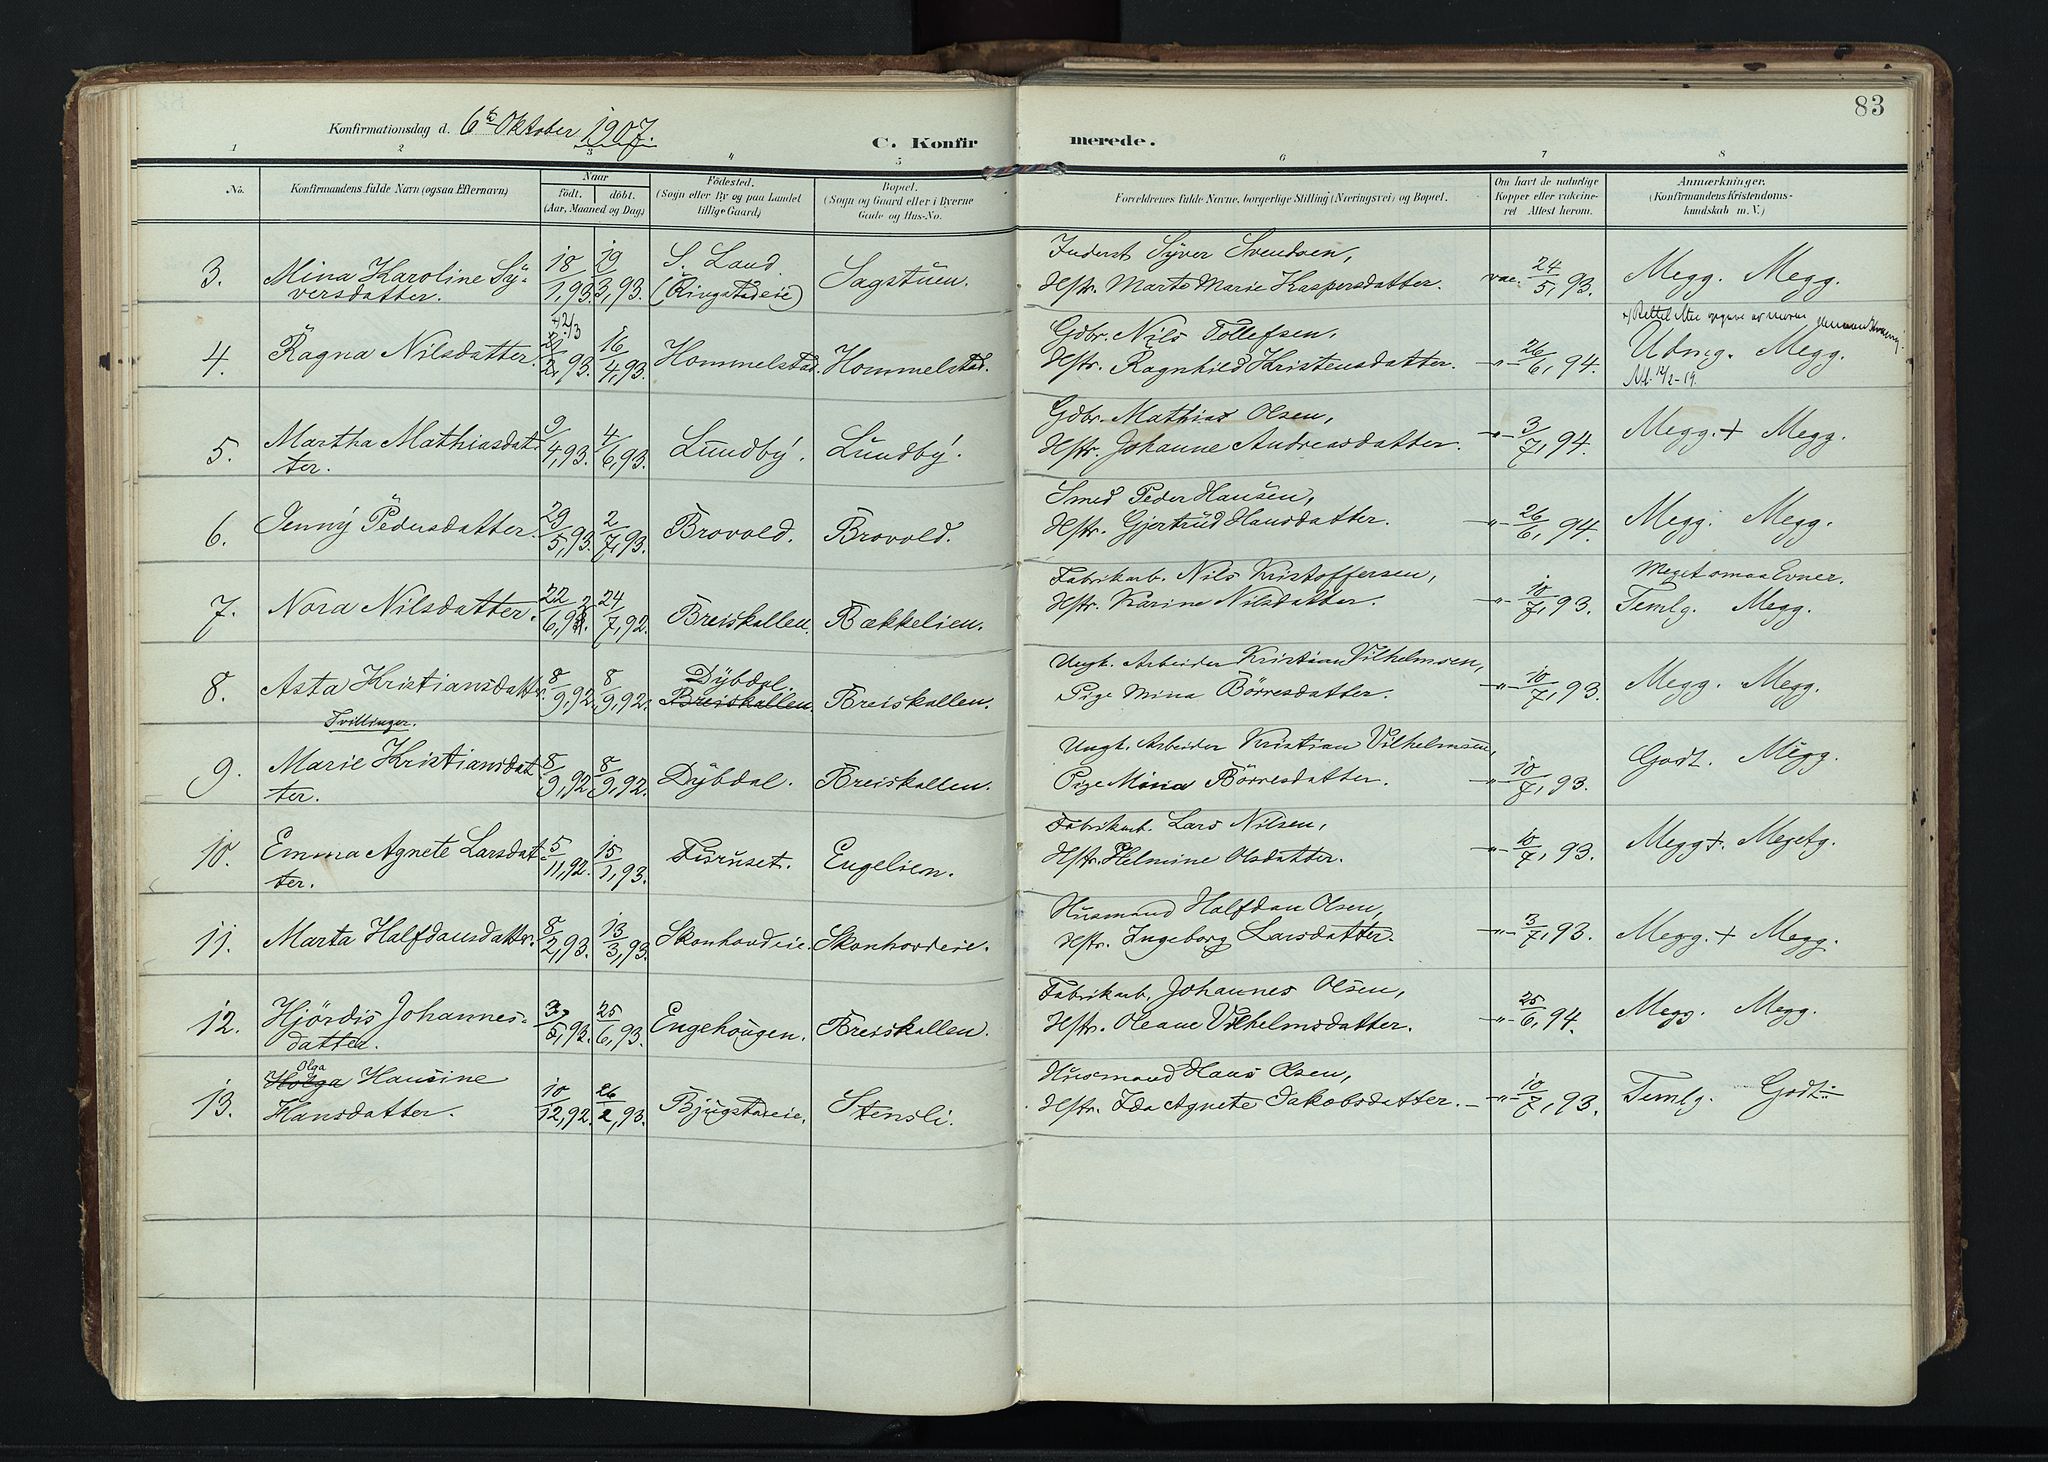 83
Konfirmationsdag d. 6te Oktober 1907.
C. Konfirmerede.
1 2 3 4 5 6 7 8
No. Konfirmandens fulde Navn (ogsaa Efternavn) Naar født. døbt. (Aar, Maaned og Dag) Fødested. (Sogn eller By og paa Landet tillige Gaard) Bopæl. (Sogn og Gaard eller i Byerne Gade og Hus-No. Forældrenes fulde Navne, borgerlige Stilling (Næringsvei) og Bopæl. Om havt de naturlige Kopper eller vakcineret Attest herom. Anmærkninger. (Konfirmandens Kristendomskundskab m. V.)
3. Mina Karoline Syversdatter. 18/1, 93. 19/3, 93. S. Land. (Ringstadeie) Sagstuen. Inderst Syver Svendsen,
Hstr. Marte Marie Kaspersdatter. vac. 24/5, 93. Megg. Megg.
4. Ragna Nilsdatter. 12/3 93. 16/4, 93. Hommelstad. Hommelstad. Gdbr. Nils Tollefsen,
Hstr. Ragnhild Kristensdatter. -"- 26/6, 94. Udmg. Megg.
Att. 12/2-19.
5. Martha Mathiasdatter. 9/4, 93. 4/6, 93. Lundby. Lundby. Gdbr. Mathias Olsen,
Hstr. Johanne Andreasdatter. -"- 3/7, 94. Megg. + Megg.
6. Jenny Pedersdatter. 29/5, 93. 2/7, 93. Brovold. Brovold. Smed Peder Hansen,
Hstr. Gjertrud Hansdatter. -"- 26/6, 94. Megg. Megg.
7. Nora Nilsdatter. 22/6, 92. 24/7, 92. Breiskallen. Bækkelien. Fabrikarb. Nils Kristoffersen,
Hstr. Karine Nilsdatter. -"- 10/7, 93. Meget smaa Evner.
Temlg. Megg.
8. Asta Kristiansdatter. 8/9, 92. 8/9, 92. Dybdal. Breiskallen. Breiskallen. Ungk. Arbeider Kristian Vilhelmsen,
Pige Mina Børresdatter. -"- 10/7, 93. Megg. Megg.
Tvillinger.
9. Marie Kristiansdatter. 8/9, 92. 8/9, 92. Dybdal. Breiskallen. Ungk. Arbeider Kristian Vilhelmsen,
Pige Mina Børresdatter. -"- 10/7, 93. Godt. Megg.
10. Emma Agnete Larsdatter. 5/11, 92. 15/1, 93. Fisruset. Engelien. Fabrikarb. Lars Nilsen,
Hstr. Helmine Olsdatter. -"- 10/7, 93. Megg +. Megetg.
11. Marta Halfdansdatter. 8/2, 93. 13/3, 93. Skonhovdeie. Skonhovdeie. Husmand Halfdan Olsen,
Hstr. Ingeborg Larsdatter. -"- 3/7, 93. Megg. + Megg.
12. Hjørdis Johannesdatter. 5, 92. 25/6, 93. Engehougen. Breiskallen. Fabrikarb. Johannes Olsen,
Hstr. Oleane Vilhelmsdatter. -"- 25/6, 94. Megg. Megg.
13. Olga Helga Hansine Hansdatter. 10/12, 92. 26/2, 93. Bjugstadeie. Stensli. Husmand Hans Olsen,
Hstr. Ida Agnete Jakobsdatter. -"- 10/7, 93. Temlg. Godt÷